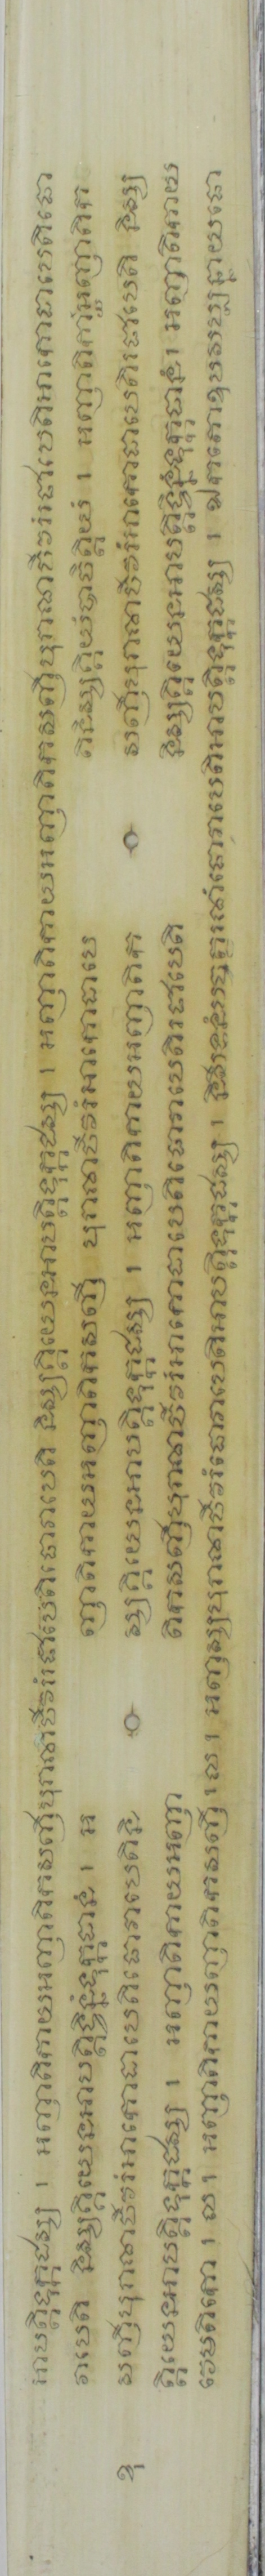 អាបត្តិទុក្កដស្ស ។ អញ្ញាតិកាយអញ្ញាតិកសញ្ញីបុរាណចីវរំរជាបេតិធោវាបេតិ និស្សគ្គិយេនអាបត្តិទុក្កដស្ស ។ អញ្ញាតិកាយអញ្ញាតិកសញ្ញីបុរាណចីវរំរជាបេតិអាកោដាបេតិធោ
វាបេតិ និស្សគ្គិយេនអាបត្តិទ្វិន្នំទុក្កដានំ ។ អ ញ្ញាតិកាយអញ្ញាតិកសញ្ញី បុរាណចីវរំអាកោដាបេ តិនិស្សគ្គិយំបាចិត្តិយំ ។ អញ្ញាតិកាយអញ្ញាតិក
ខុ សញ្ញីបុរាណចីវរំអាកោដាបេតិធោវាបេតិនិ ស្សគ្គិយេនអាបត្តិទុក្កដស្ស ។ អញ្ញាតិកាយអញ្ញាតិក សញ្ញីបុរាណចីវរំអាកោដាបេតិរជាបេតិ និស្ស
គ្គិយេនអាបត្តិទុក្កដស្ស ។ អញ្ញាតិកាយអញ្ញា តិកសញ្ញីបុរាណចីវរំអាកោដាបេតិធោវាបេតិរជាបេតិ និស្សគ្គិយេនអាបត្តិទ្វិន្នំទុក្កដានំ។ អញ្ញាតិកាយ
វេមតិកោ ។ ល ។ អញ្ញាតិកាយញាតិកសញ្ញី ។ល ។ អញ្ញស្សបុរាណចីវរំធោវាបេតិអាបត្តិទុក្កដស្ស ។ និសីទនំបច្ចត្ថរណំធោវាបេតិអាបត្តិទុក្កដស្ស ។ ឯកតោឧបសម្បន្នាយធោ